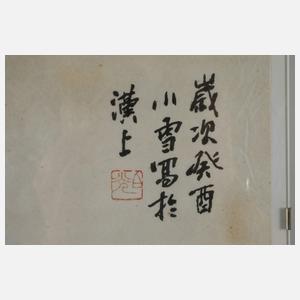 歲次癸酉
小雪寫於
漢上